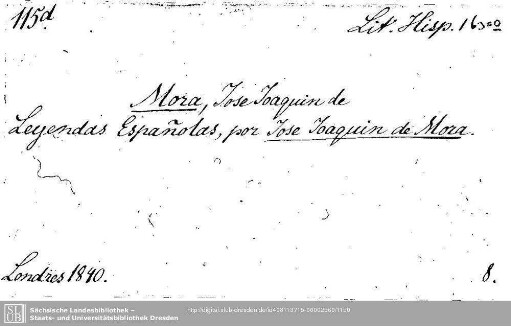 115d Lit. Hisp. 1630
Mora, Jose Joaquin de
Leyendas Españolas, por Jose Joaquin de Mora.
Londres 1840. 8.
SLUB
Sächsische Landesbibliothek –
Staats- und Universitätsbibliothek Dresden